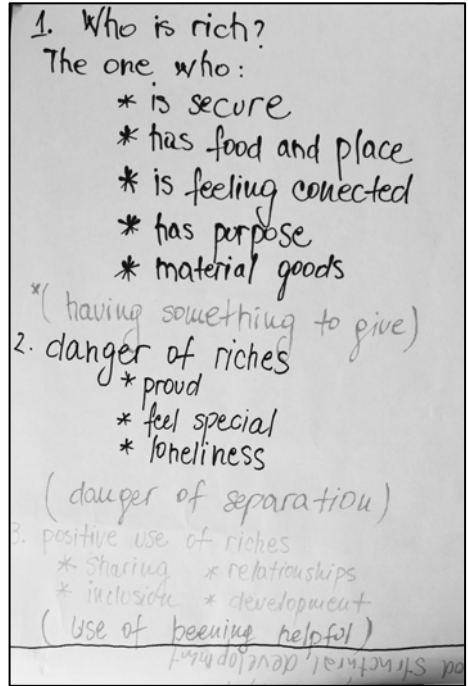 1. Who is rich?
The one who:
* is secure
* has food and place
* is feeling conected
* has purpose
* material goods
*( having something to give)
2. danger of riches
* proud
* feel special
* loneliness
( danger of separation)
3. positive use of riches
* sharing * relationships
* inclusion * development
( use of beening helpful)
structural, development